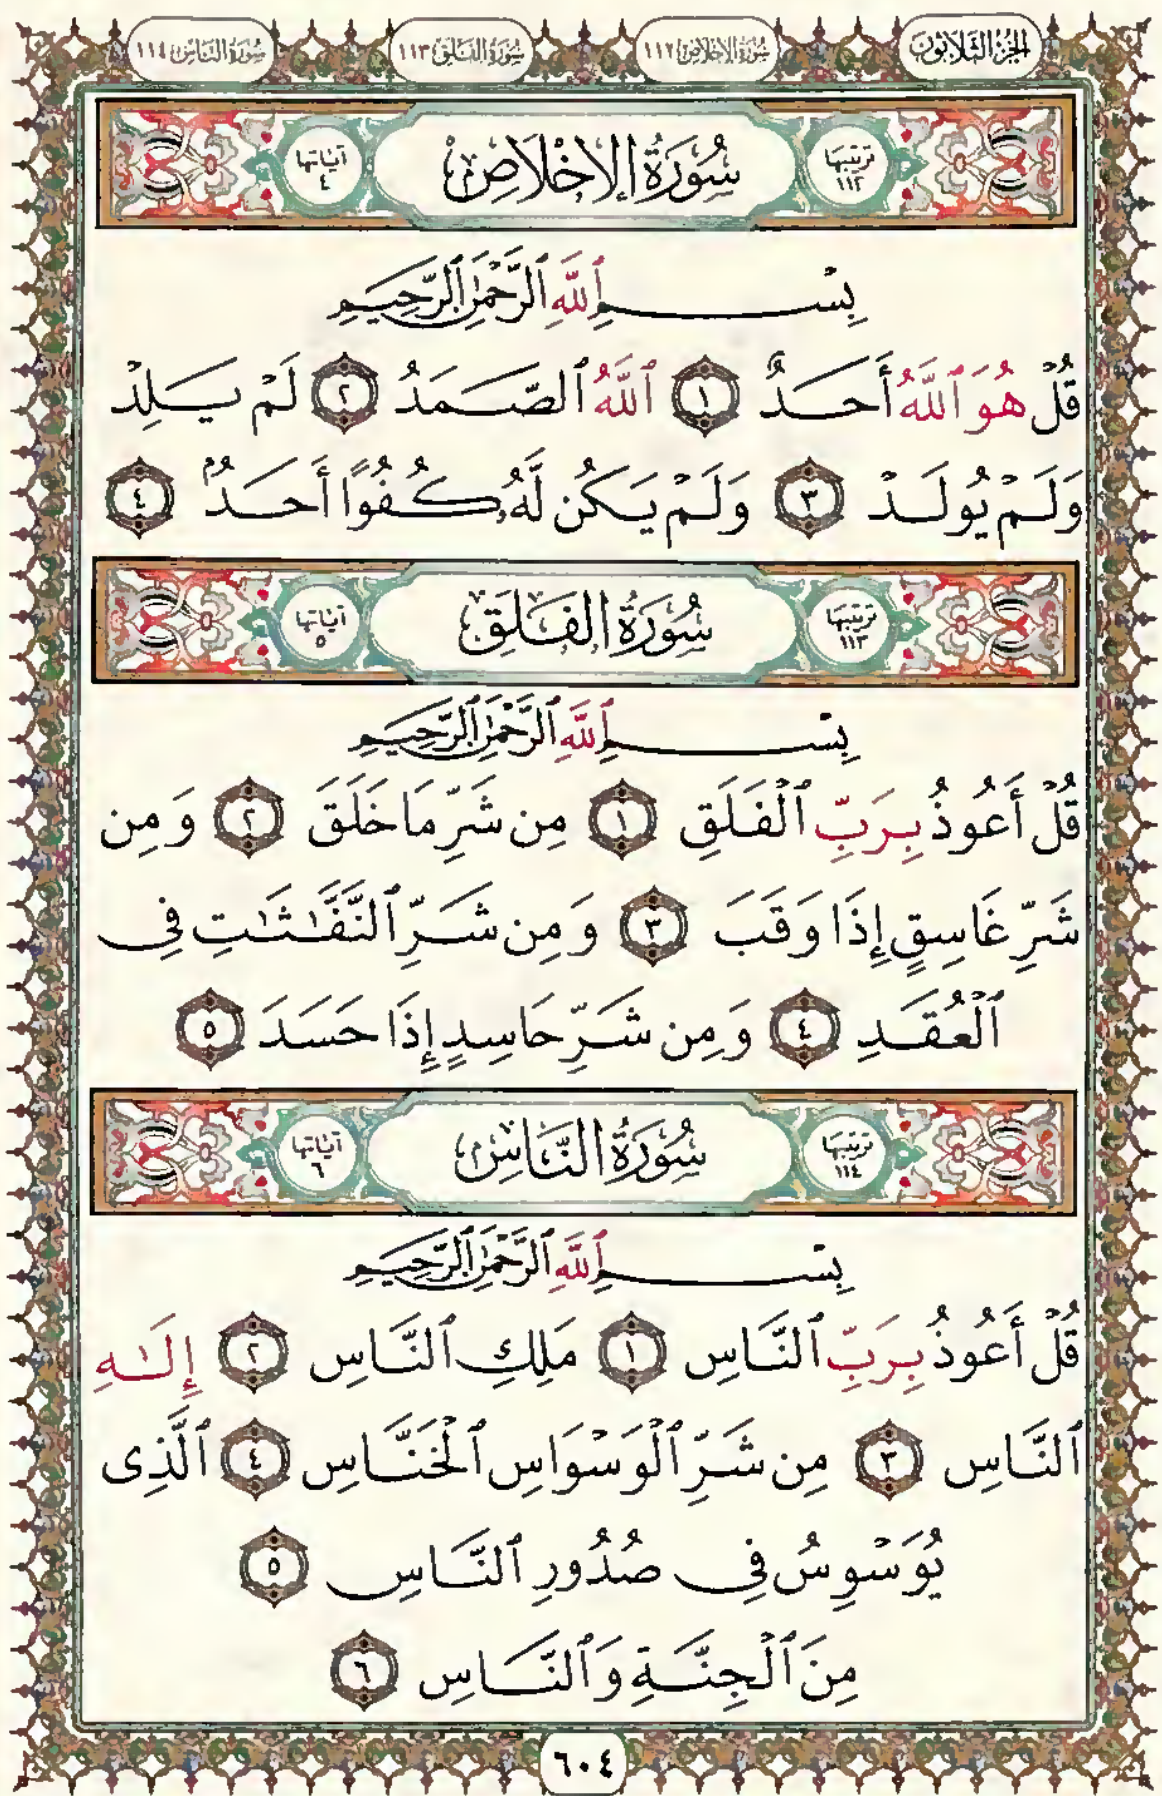 الجزء الثلاثون
سورة الإخلاص ١١٢
سورة الفلق ١١٣
سورة الناس ١١٤
ترتيبها ١١٢
سُورَةُ الإِخْلَاصِ
آياتها ٤
بِسْمِ ٱللَّهِ ٱلرَّحْمَٰنِ ٱلرَّحِيمِ
قُلْ هُوَ ٱللَّهُ أَحَدٌ ١ ٱللَّهُ ٱلصَّمَدُ ٢ لَمْ يَلِدْ
وَلَمْ يُولَدْ ٣ وَلَمْ يَكُن لَّهُۥ كُفُوًا أَحَدٌۢ ٤
ترتيبها ١١٣
سُورَةُ الفَلَقِ
آياتها ٥
بِسْمِ ٱللَّهِ ٱلرَّحْمَٰنِ ٱلرَّحِيمِ
قُلْ أَعُوذُ بِرَبِّ ٱلْفَلَقِ ١ مِن شَرِّ مَا خَلَقَ ٢ وَمِن
شَرِّ غَاسِقٍ إِذَا وَقَبَ ٣ وَمِن شَرِّ ٱلنَّفَّٰثَٰتِ فِى
ٱلْعُقَدِ ٤ وَمِن شَرِّ حَاسِدٍ إِذَا حَسَدَ ٥
ترتيبها ١١٤
سُورَةُ النَّاسِ
آياتها ٦
بِسْمِ ٱللَّهِ ٱلرَّحْمَٰنِ ٱلرَّحِيمِ
قُلْ أَعُوذُ بِرَبِّ ٱلنَّاسِ ١ مَلِكِ ٱلنَّاسِ ٢ إِلَٰهِ
ٱلنَّاسِ ٣ مِن شَرِّ ٱلْوَسْوَاسِ ٱلْخَنَّاسِ ٤ ٱلَّذِى
يُوَسْوِسُ فِى صُدُورِ ٱلنَّاسِ ٥
مِنَ ٱلْجِنَّةِ وَٱلنَّاسِ ٦
٦٠٤